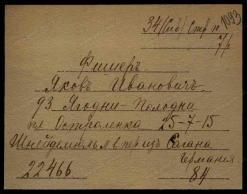 34/(Сиб) Стр п. 1093
7/р
Фишеръ
Яковъ Ивановичъ
93 Ягодно-Полодка
пл Остроленка 25-7-15
Шнейдемюль в пер из Сагана
Германия
22466 84